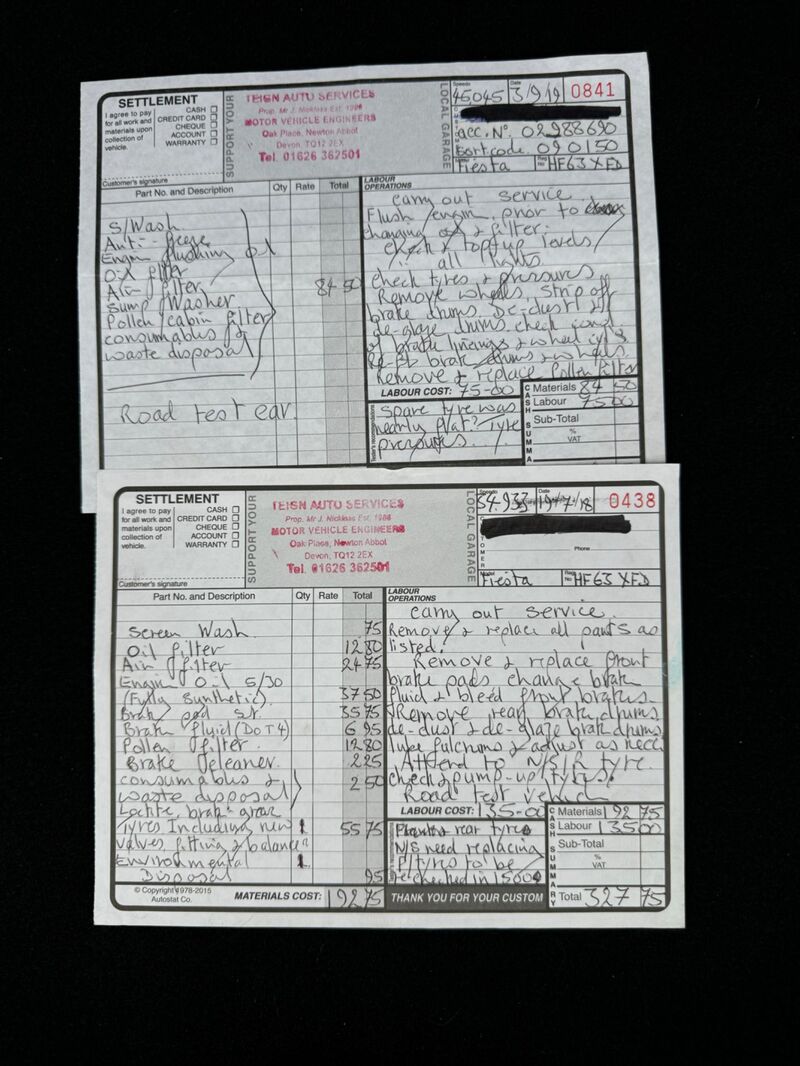 SETTLEMENT
I agree to pay for all work and materials upon collection of vehicle.
CASH
CREDIT CARD
CHEQUE
ACCOUNT
WARRANTY
Customer's signature
SUPPORT YOUR
LOCAL GARAGE
TEIGN AUTO SERVICES
Prop. Mr J. Nickless Est. 1986
MOTOR VEHICLE ENGINEERS
Oak Place, Newton Abbot
Devon, TQ12 2EX
Tel. 01626 362501
Speedo 45045
Date 3/9/19
0841
acc. No. 02988690
Sort code. 090150
Model Fiesta
Reg No HF63 XFD
Part No. and Description Qty Rate Total
S/Wash
Anti-freeze
Engin flushing oil
Oil filter
Air filter
Sump Washer
Pollen/cabin filter
consumables &
waste disposal
84 50
Road test car.
LABOUR OPERATIONS
Carry out service.
Flush engin, prior to
changing oil & filter.
check & top up levels
" all lights
check tyres & pressures
Remove wheels, strip off
brake drums. De-dust &
de-glaze drums, check cond.
of brake linings & wheel cyls
Re-fit brak drums & wheels.
Remove & replace Pollen filter
LABOUR COST: 75-00
Spare tyre was
nearly flat? Tyre
pressures.
CASH SUMMA
Materials 84 50
Labour 75 00
Sub-Total
%
VAT
SETTLEMENT
I agree to pay for all work and materials upon collection of vehicle.
CASH
CREDIT CARD
CHEQUE
ACCOUNT
WARRANTY
Customer's signature
SUPPORT YOUR
LOCAL GARAGE
TEIGN AUTO SERVICES
Prop. Mr J. Nickless Est. 1986
MOTOR VEHICLE ENGINEERS
Oak Place, Newton Abbot
Devon, TQ12 2EX
Tel. 01626 362501
Speedo 34.933
Date 19/7/18
0438
CUSTOMER
Phone
Model Fiesta
Reg No HF63 XFD
Part No. and Description Qty Rate Total
Screen Wash 75
Oil filter 12 80
Air filter 24 75
Engin Oil 5/30
(Fully Synthetic) 37 50
Brak pad St. 35 75
Brak fluid (DoT4) 6 95
Pollen filter 12 80
Brake cleaner 2 25
consumables &
waste disposal 2 50
Loctite, brak grease
Tyres Including new 1 55 75
valves, fitting & balance
Environmental 1
Disposal 95
© Copyright 1978-2015
Autostat Co.
MATERIALS COST: 192 75
LABOUR OPERATIONS
Carry out service.
Remove & replace all parts as
listed.
Remove & replace front
brake pads change brak
fluid & bleed front brakes.
Remove rear brak drums
de-dust & de-glaze brak drums
lube fulcrums & adjust as necc
Attend to N/S/R tyre.
check & pump-up tyres.
Road test vehicle
LABOUR COST: 135-00
rear tyres
N/S need replacing
tyres to be
re-checked in 1500
THANK YOU FOR YOUR CUSTOM
CASH SUMMARY
Materials 192 75
Labour 135 00
Sub-Total
%
VAT
Total 327 75